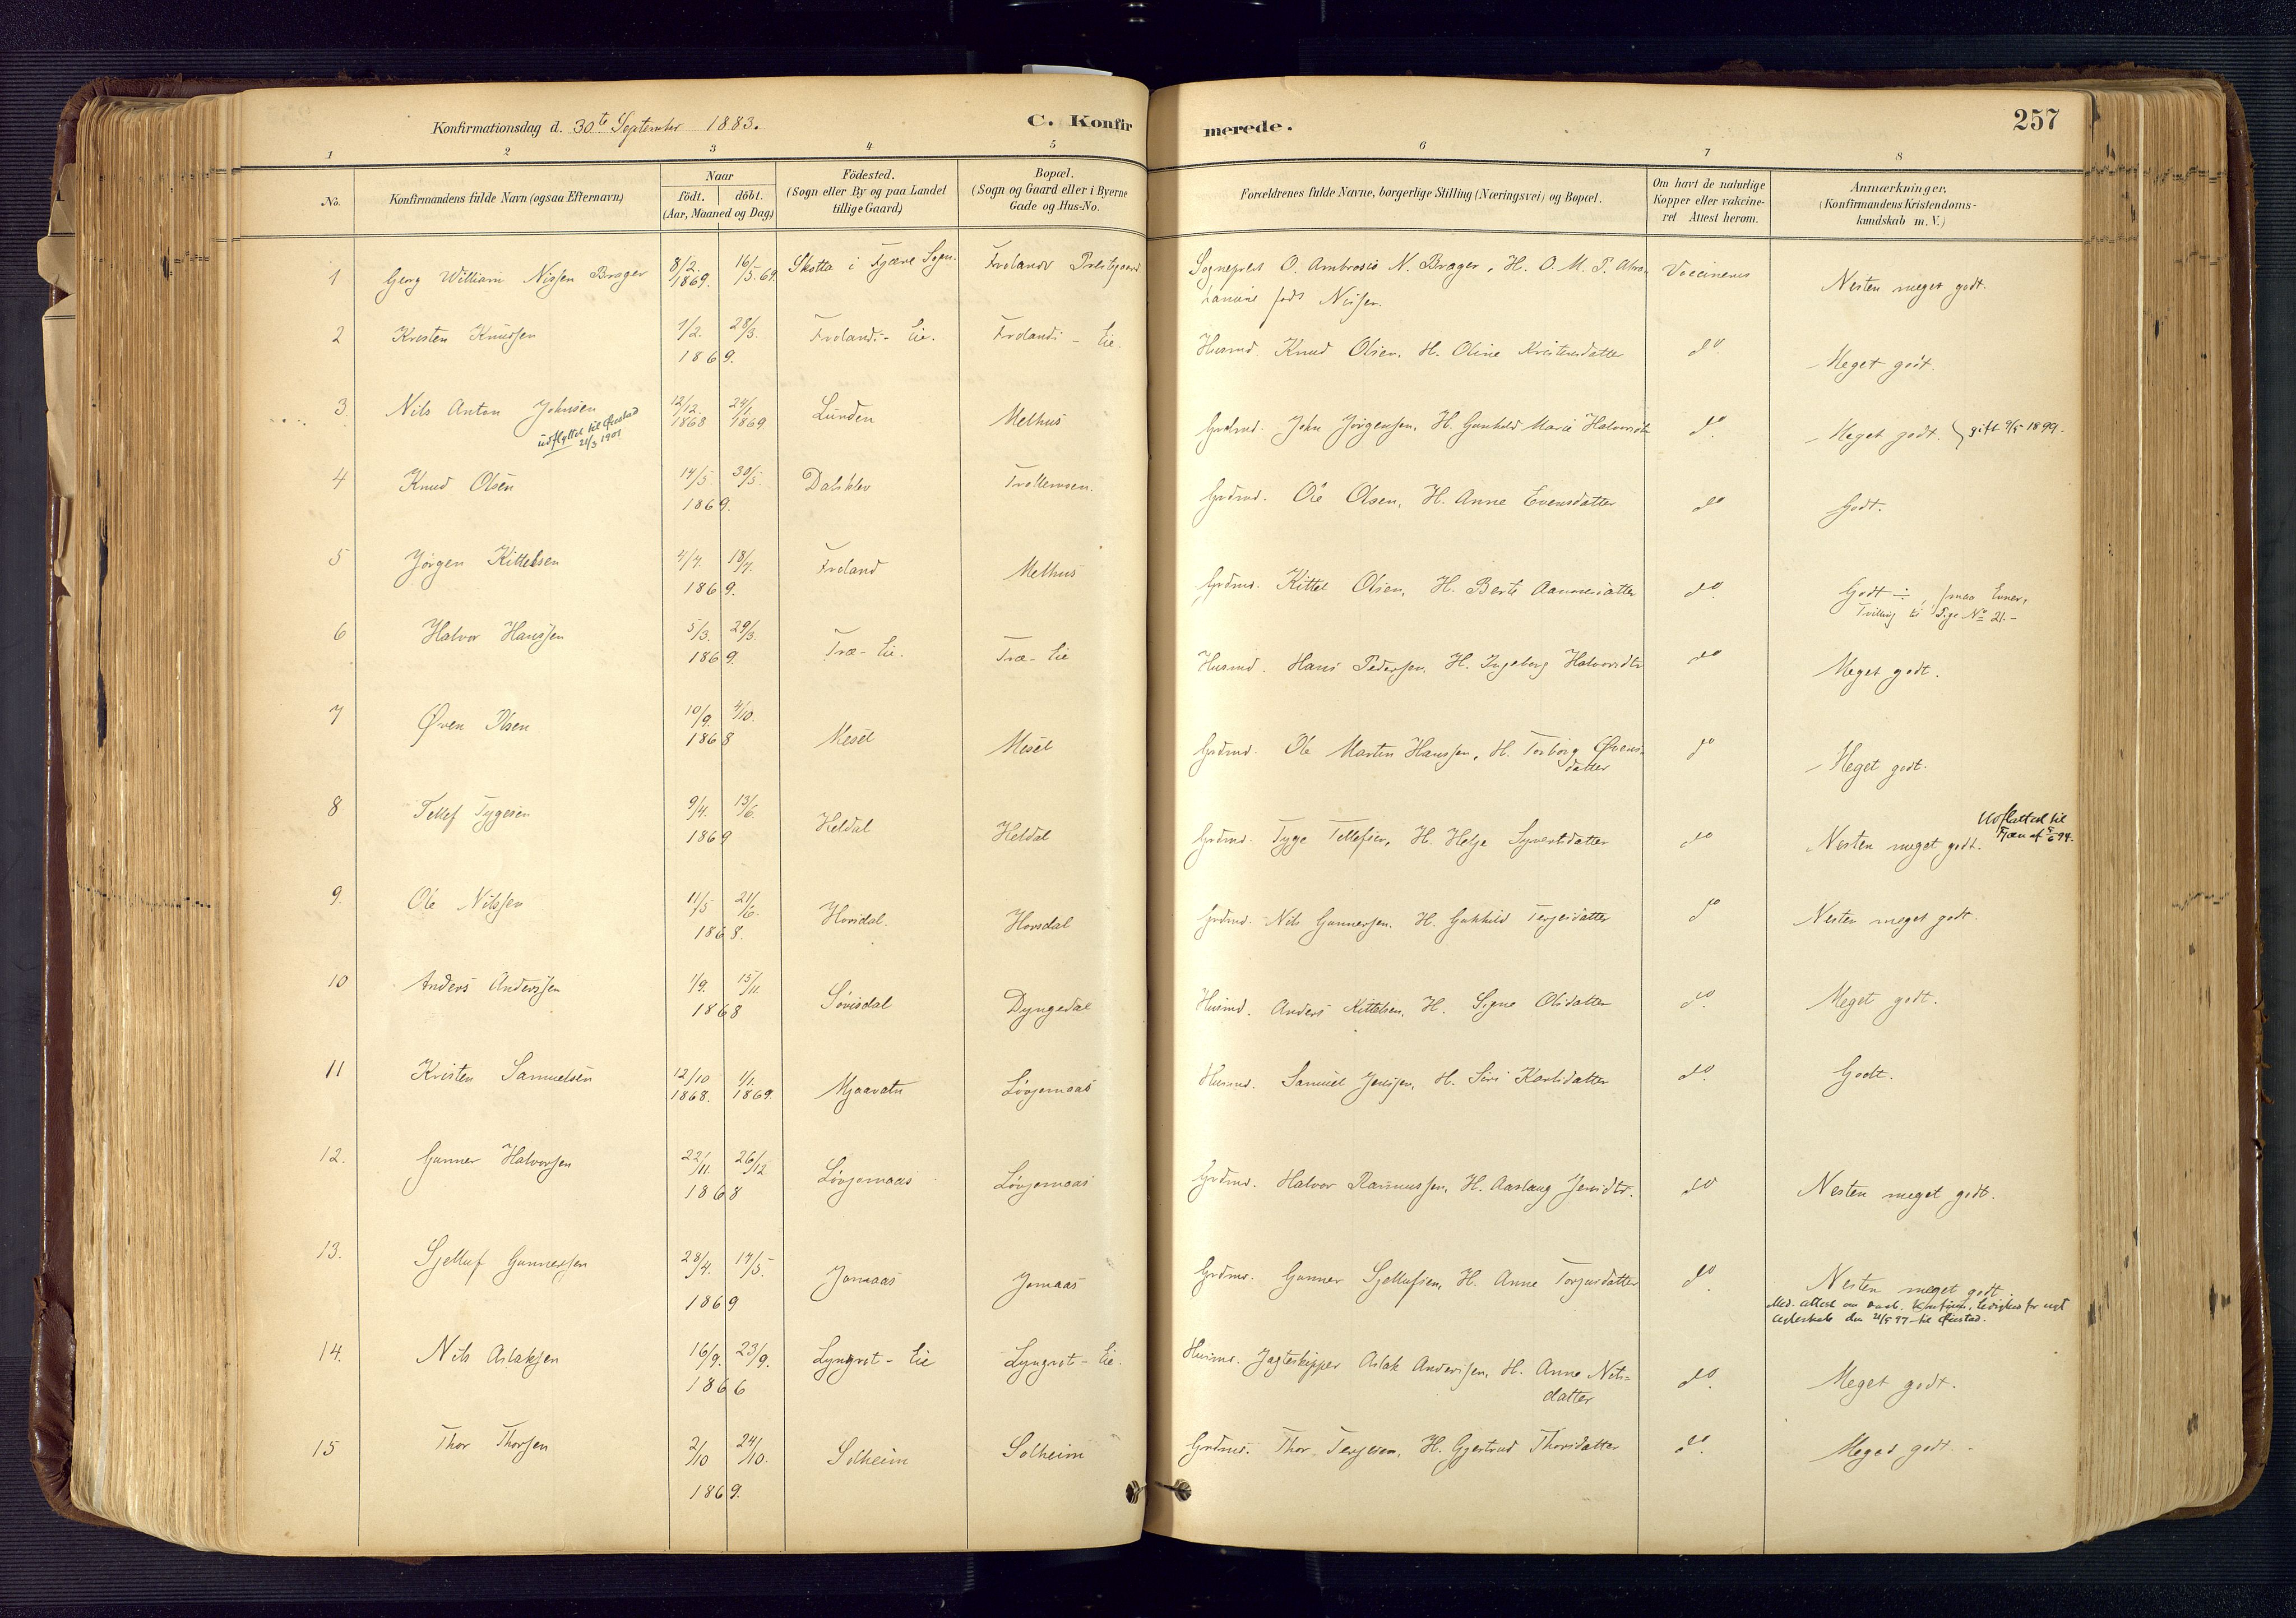 Konfirmationsdag d. 30te September 1883.
C. Konfirmerede.
257
1 2 3 4 5 6 7 8
No.
Konfirmandens fulde Navn (ogsaa Efternavn)
Naar
födt. döbt.
(Aar, Maaned og Dag)
Födested.
(Sogn eller By og paa Landet
tillige Gaard)
Bopæl.
(Sogn og Gaard eller i Byerne
Gade og Hus-No.
Forældrenes fulde Navne, borgerlige Stilling (Næringsvei) og Bopæl.
Om havt de naturlige
Kopper eller vakcine-
ret Attest herom.
Anmærkninger.
(Konfirmandens Kristendoms-
kundskab m. V.)
1 Georg William Nissen Brager 8/2. 1869. 16/5 69. i Fjære Sogn. Frolands Prestgaard Sogneprest O. Ambrosius N. Brager, H. O. M. P. Abra-
hamine født Nissen. Vaccineres Nesten meget godt.
2 Kristen Knudsen 1/2. 28/3. 1869. Frolands-Eie. Frolands-Eie. Husmd. Knud Olsen, H. Oline Kristensdatter do. Meget godt.
3. Nils Anton Johnsen 12/12. 1868 24/1. 1869 Lunden Melhus Grdmd. John Jörgensen, H. Gunhild Marie Halvorsdtr do. Meget godt. gift 9/5 1899.
udflyttet til Øiestad
21/3 1901
4 Knud Olsen 14/5. 30/5. 1869. Dalsklev Trollemoen. Grdmd. Ole Olsen, H. Anne Evensdatter do Godt.
5 Jörgen Kittelsen 4/7. 18/7. 1869. Froland Melhus Grdmd. Kittel Olsen, H. Berte Aanonsdatter do. Godt ÷, smaa Evner,
Tvilling til Pige No 21.-
6 Halvor Hanssen 5/3. 29/3. 1869. Træ-Eie. Træ-Eie Husmd. Hans Pedersen, H. Ingeborg Halvorsdtr do Meget godt.
7 Øven Olsen 10/9. 4/10. 1868 Mesel Mesel Grdmd. Ole Martin Hanssen, H. Torborg Øvens-
datter do Meget godt.
8 Tellef Tygesen 9/4. 13/6. 1869 Heldal Heldal Grdmd. Tyge Tellefsen, H. Helje Syvertsdatter do Nesten meget godt. Udflyttet til
9. Ole Nilssen 11/5 21/6. 1868. Hovsdal. Hovsdal Grdmd. Nils Gunnersen. H. Gunhild Terjesdatter do Nesten meget godt.
10 Anders Anderssen 1/9. 15/11. 1868 Sövisdal Dyngedal Husmd. Anders Kittelsen, H. Signe Olsdatter do. Meget godt.
11 Kristen Samuelsen 12/10 1868. 1/1. 1869. Mjaavatn Lövjomaas Husmd. Samuel Jenssen, H. Siri Karlsdatter do. Godt.
12. Gunner Halvorsen 22/11. 26/12 1868 Lövjomaas Lövjomaas Grdmd. Halvor Rasmussen, H. Aaslaug Jensdtr. do Nesten meget godt.
13. Sjelluf Gunnersen 28/4. 17/5. 1869 Jomaas Jomaas Grdmd. Gunner Sjellufsen, H. Anne Torjusdatter do. Nesten meget godt.
til Øiestad.
14. Nils Aslaksen 16/9. 23/9. 1866 Lyngrot-Eie Lyngrot-Eie. Husmd. Jagteskipper Aslak Anderssen, H. Anne Nils-
datter do. Meget godt.
15 Thor Thorsen 2/10 24/10. 1869. Solheim Solheim Grdmd. Thor Terjesen, H. Gjertrud Thorsdatter do. Meget godt.